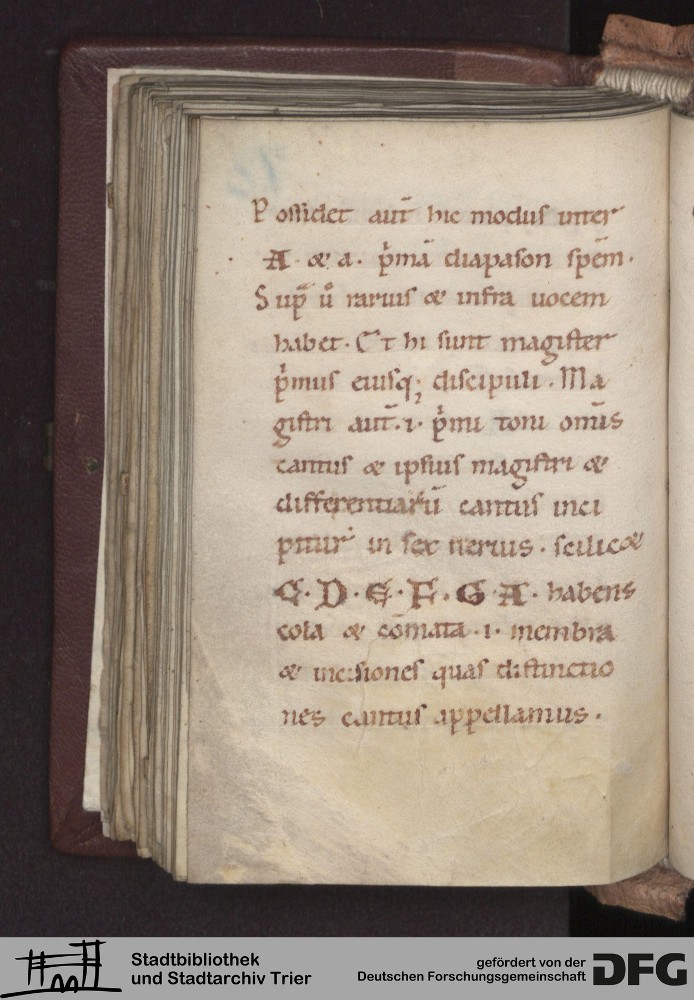 Possidet aut̄ hic modus inter
A · & a · p̍mā diapason spēm ·
Sup̄ u̍ rarius & infra uocem
habet · Et hi sunt magister
p̍mus eiusq; discipuli · Ma
gistri aut̄ · i · p̍mi toni om̄s
cantus & ipsius magistri &
differentiarū cantus inci
pitur in sex neruis · scilic&
C · D · E · F · G · A · habens
cola & cōmata · i · membra
& incisiones quas distinctio
nes cantus appellamus ·
Stadtbibliothek
und Stadtarchiv Trier
gefördert von der
Deutschen Forschungsgemeinschaft
DFG